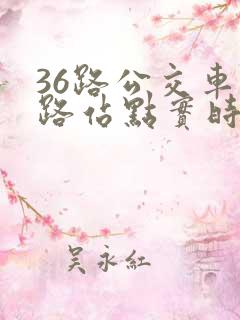 36路公交車
路佔點實時
吴永紅